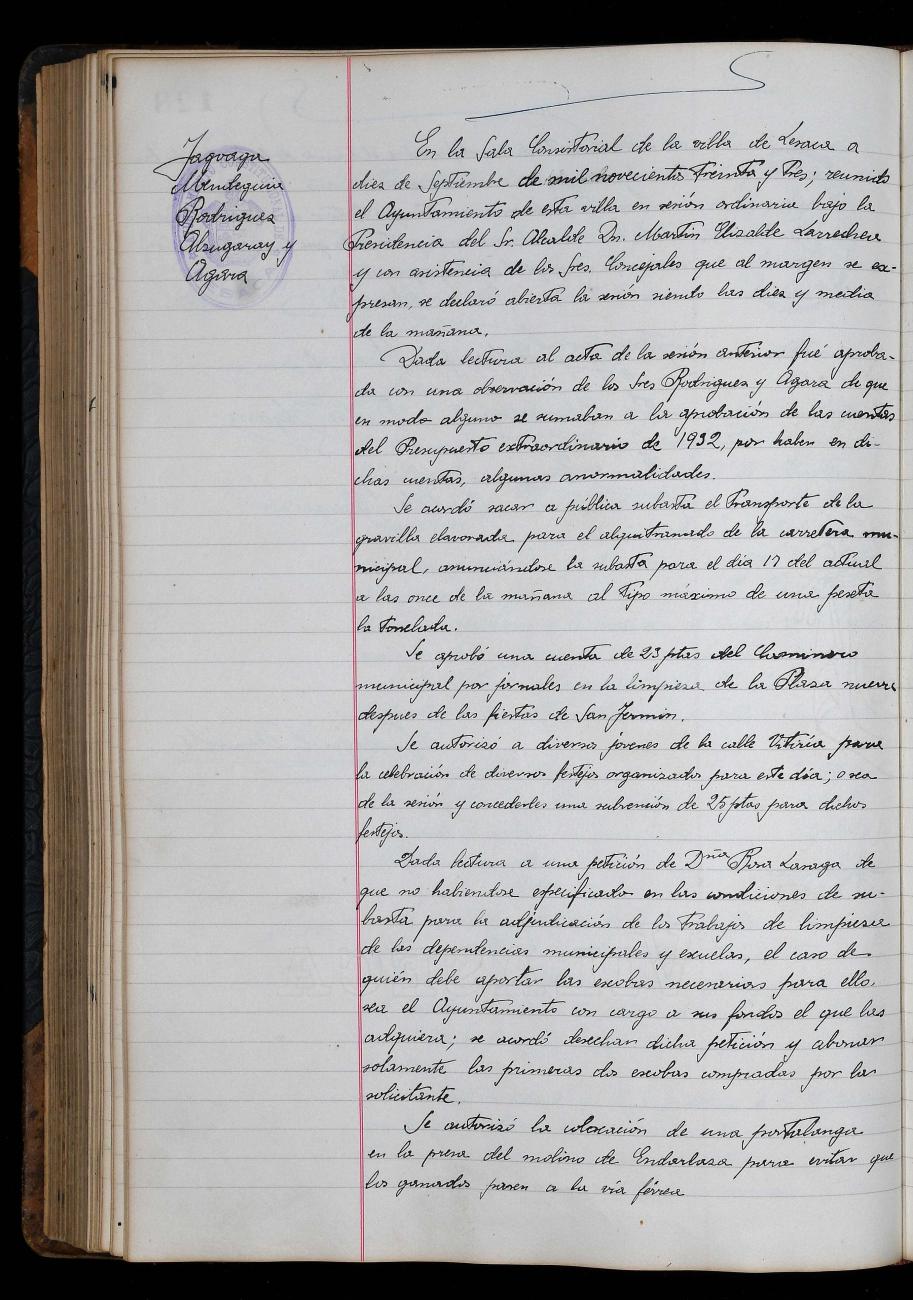 Jaguagu
Mendeguia
Rodriguez
Alzugaray y
Agara
En la Sala Consistorial de la villa de Lesaca a
diez de Septiembre de mil novecientos treinta y tres; reunido
el Ayuntamiento de esta villa en sesión ordinaria bajo la
Presidencia del Sr. Alcalde Dn. Martin Elizalde Larrechea
y con asistencia de los Sres. Concejales que al margen se ex-
presan, se declaró abierta la sesión siendo las diez y media
de la mañana.
Dada lectura al acta de la sesión anterior fué aproba-
da con una observación de los Sres Rodriguez y Agara de que
en modo alguno se sumaban a la aprobación de las cuentas
del Presupuesto extraordinario de 1932, por haber en di-
chas cuentas, algunas anormalidades.
Se acordó sacar a pública subasta el transporte de la
gravilla elavorada para el alquitranado de la carretera mu-
nicipal, anunciándose la subasta para el dia 17 del actual
a las once de la mañana al tipo máximo de una peseta
la tonelada.
Se aprobó una cuenta de 23 ptas del Caminero
municipal por jornales en la limpieza de la Plaza nueva
despues de las fiestas de San Fermin.
Se autorizó a diversos jóvenes de la calle Vitiria para
la celebración de diversos festejos organizados para este dia; o sea
de la sesión y concederles una subención de 25 ptas para dichos
festejos.
Dada lectura a una petición de Dña Rosa Lasaga de
que no habiendose especificado en las condiciones de su-
basta para la adjudicación de los trabajos de limpieza
de las dependencias municipales y escuelas, el caso de
quién debe aportar las escobas necesarias para ello,
sea el Ayuntamiento con cargo a sus fondos el que las
adquiera; se acordó desechar dicha petición y abonar
solamente las primeras dos escobas compradas por la
solicitante.
Se autorizó la colocación de una portalanga
en la presa del molino de Endarlaza para evitar que
los ganados pasen a la via férrea